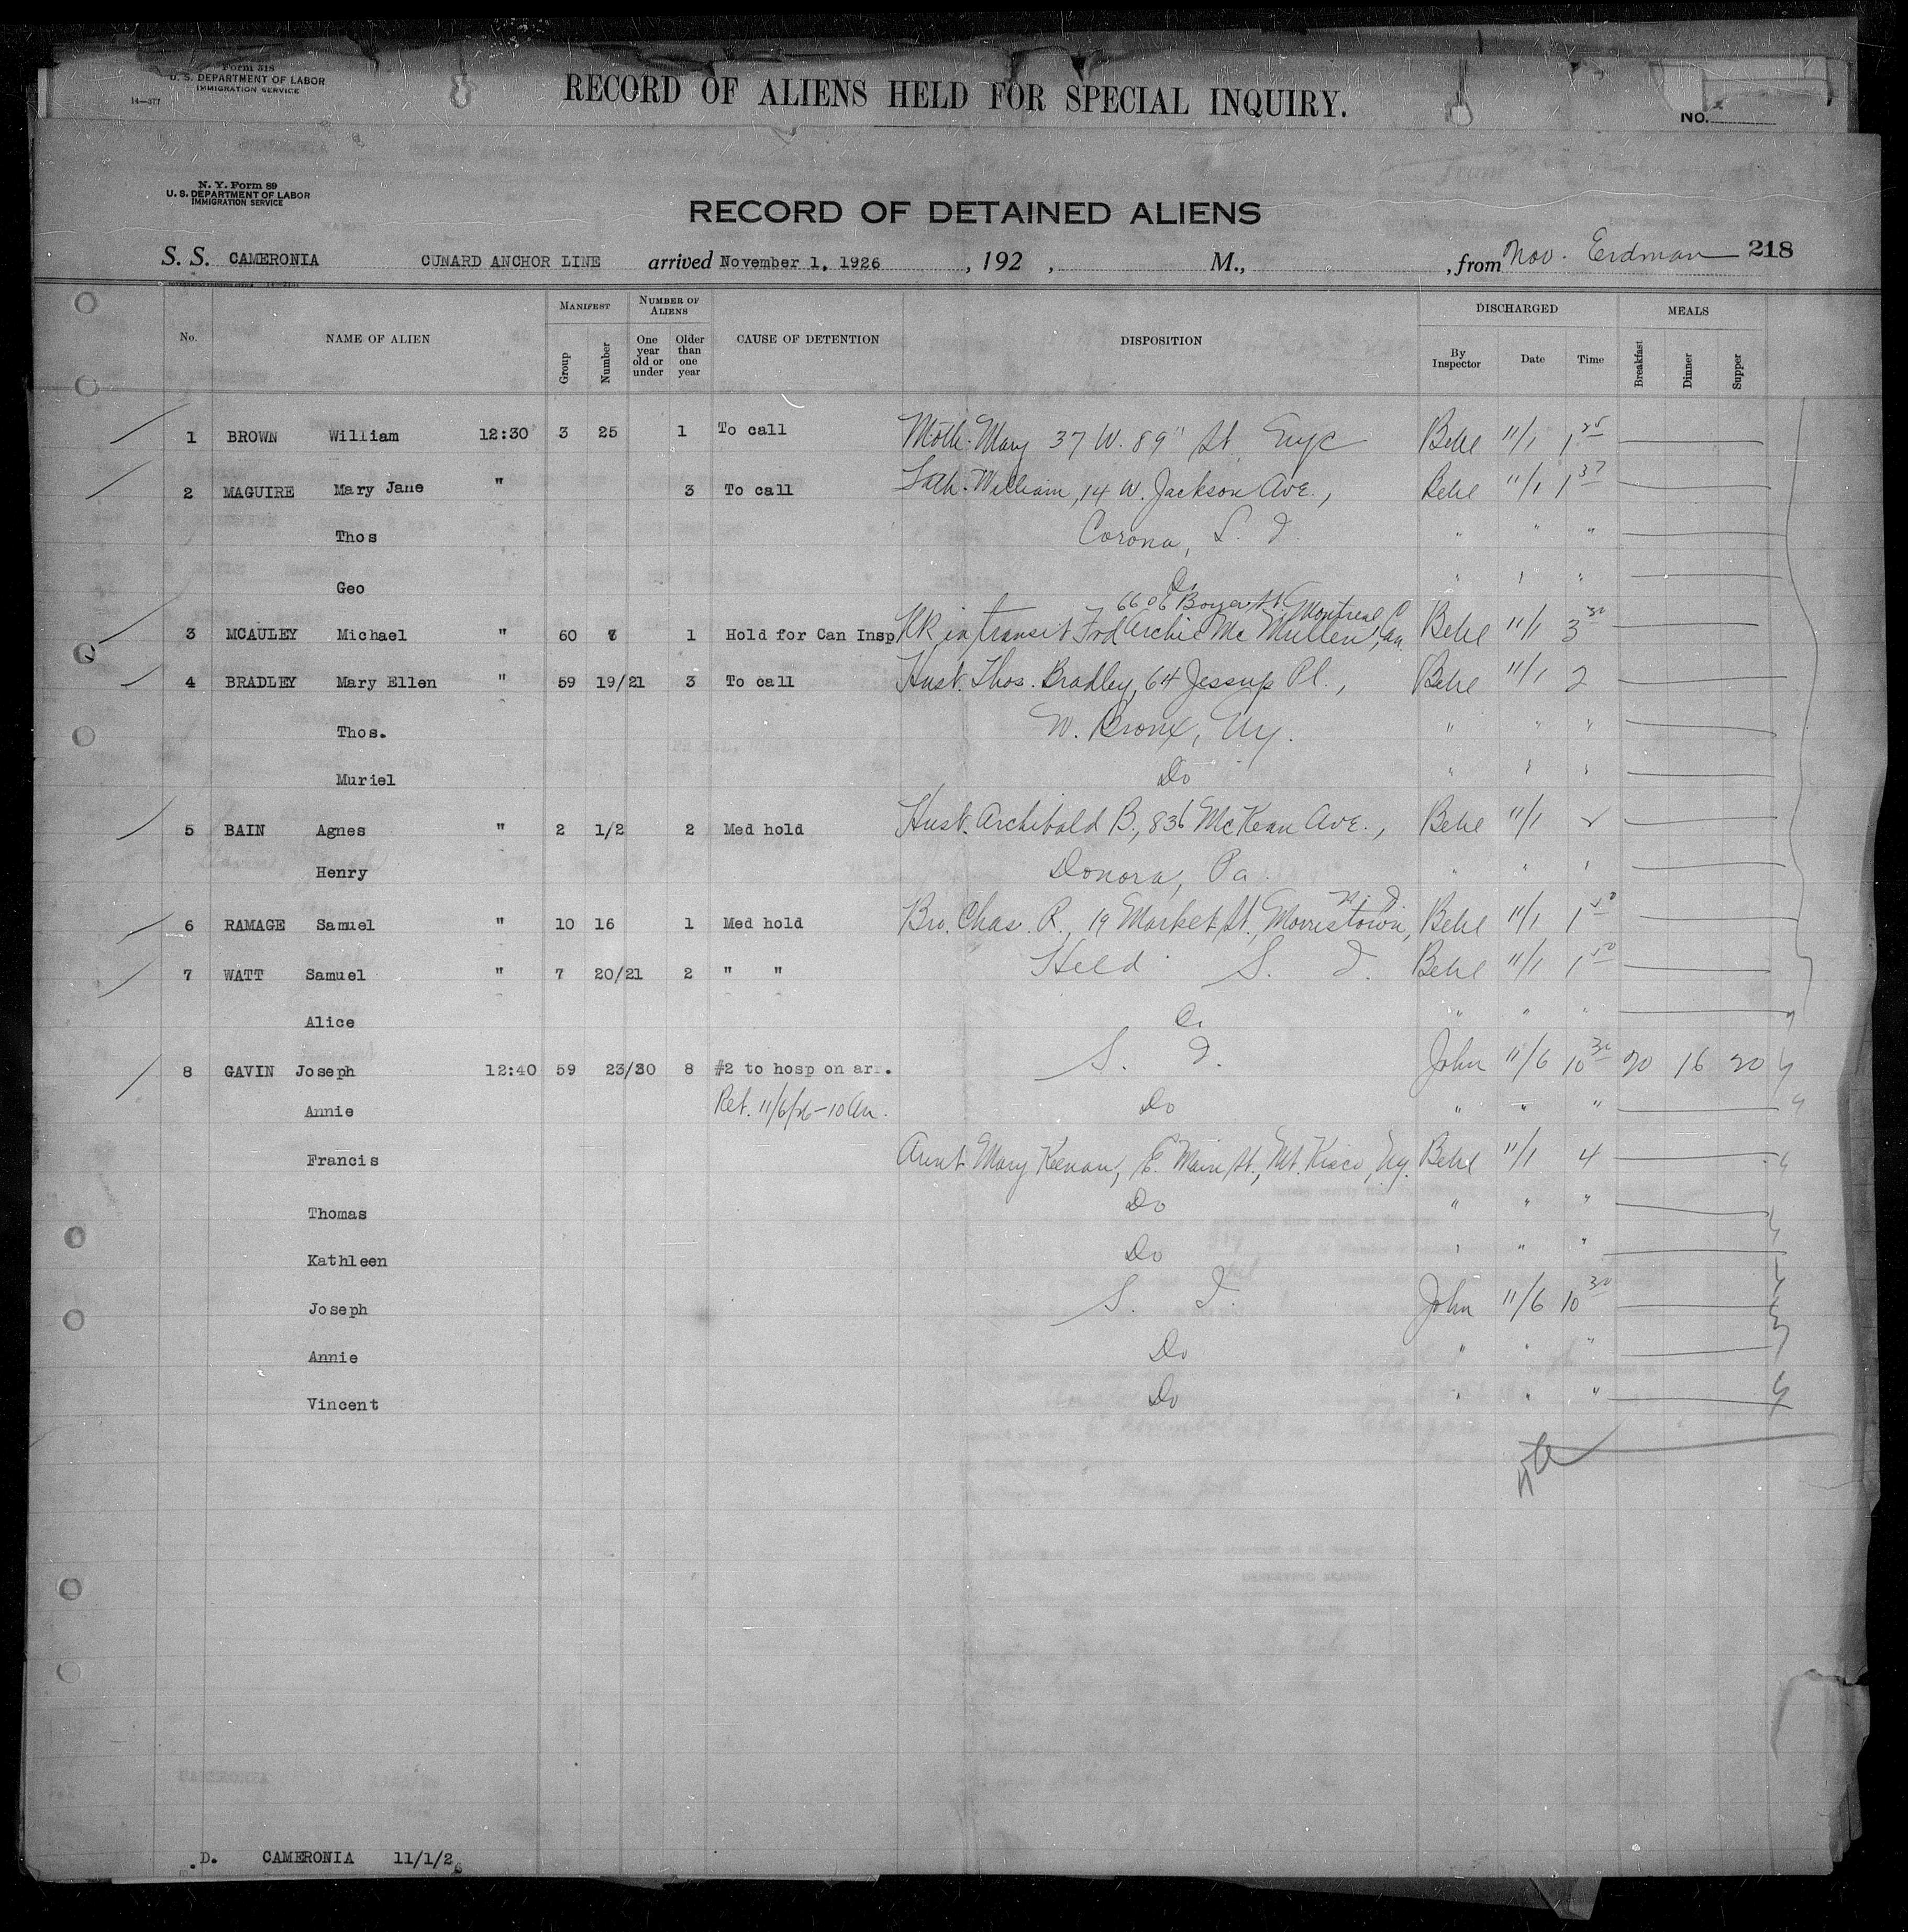 Form 318
U. S. DEPARTMENT OF LABOR
IMMIGRATION SERVICE
14—377
RECORD OF ALIENS HELD FOR SPECIAL INQUIRY.
NO.
N. Y. Form 89
U. S. DEPARTMENT OF LABOR
IMMIGRATION SERVICE
RECORD OF DETAINED ALIENS
S. S. CAMERONIA CUNARD ANCHOR LINE arrived November 1, 1926, 192 , M., , from Nov. Erdman 218
No. NAME OF ALIEN MANIFEST Group Number NUMBER OF ALIENS One year old or under Older than one year CAUSE OF DETENTION DISPOSITION DISCHARGED By Inspector Date Time MEALS Breakfast Dinner Supper
1 BROWN William 12:30 3 25 1 To call Moth. Mary 37 W. 89" St. Nyc Behl 11/1 1
2 MAGUIRE Mary Jane " 3 To call Fath. William, 14 W. Jackson Ave., Behl 11/1 1 37
Thos Corona, L. I. " " "
Geo Do " " "
6606 Boyer St. Montreal
3 MCAULEY Michael " 60 1 Hold for Can Insp RR in transit Frd Archie McMullen, Can. Behl 11/1 3 30
4 BRADLEY Mary Ellen " 59 19/21 3 To call Husb. Thos. Bradley, 64 Jessup Pl., Behl 11/1 2
Thos. W. Bronx, Ny. " " "
Muriel Do " " "
5 BAIN Agnes " 2 1/2 2 Med hold Husb. Archibald B., 836 McKean Ave., Behl 11/1 2
Henry Donora, Pa. " " "
N. J.
6 RAMAGE Samuel " 10 16 1 Med hold Bro. Chas. R., 19 Market St., Morristown, Behl 11/1 1 50
7 WATT Samuel " 7 20/21 2 " " Held S. I. Behl 11/1 1 50
Alice Do " " "
8 GAVIN Joseph 12:40 59 23/30 8 #2 to hosp on arr. S. I. John 11/6 10 30 20 16 20
Annie Ret. 11/6/26-10 Am. Do " " "
Francis Aunt Mary Keenan, E. Main St., Mt. Kisco, Ny. Behl 11/1 4
Thomas Do " " "
Kathleen Do " " "
Joseph S. I. John 11/6 10 30
Annie Do " " "
Vincent Do " " "
.D. CAMERONIA 11/1/26